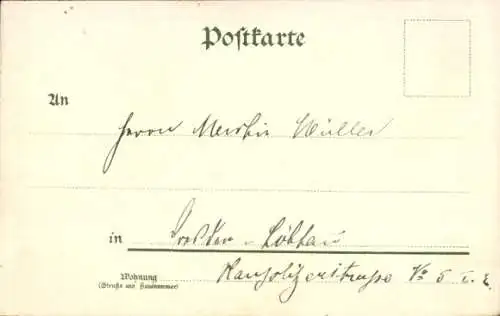 Postkarte
An
Herrn Müller
in Dresden - Löbtau
Wohnung
(Straße und Hausnummer)
No 5 I. r.